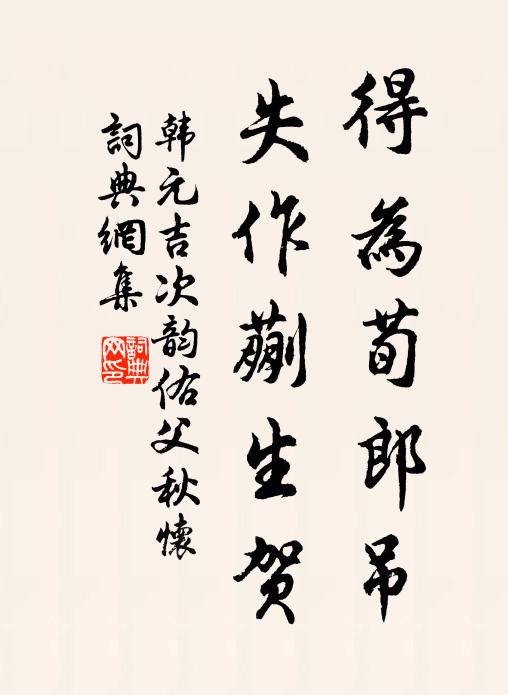 得為荀郎吊
失作蒯生贺
韩元吉次韵佑父秋懷
詞典網集
詞典網印